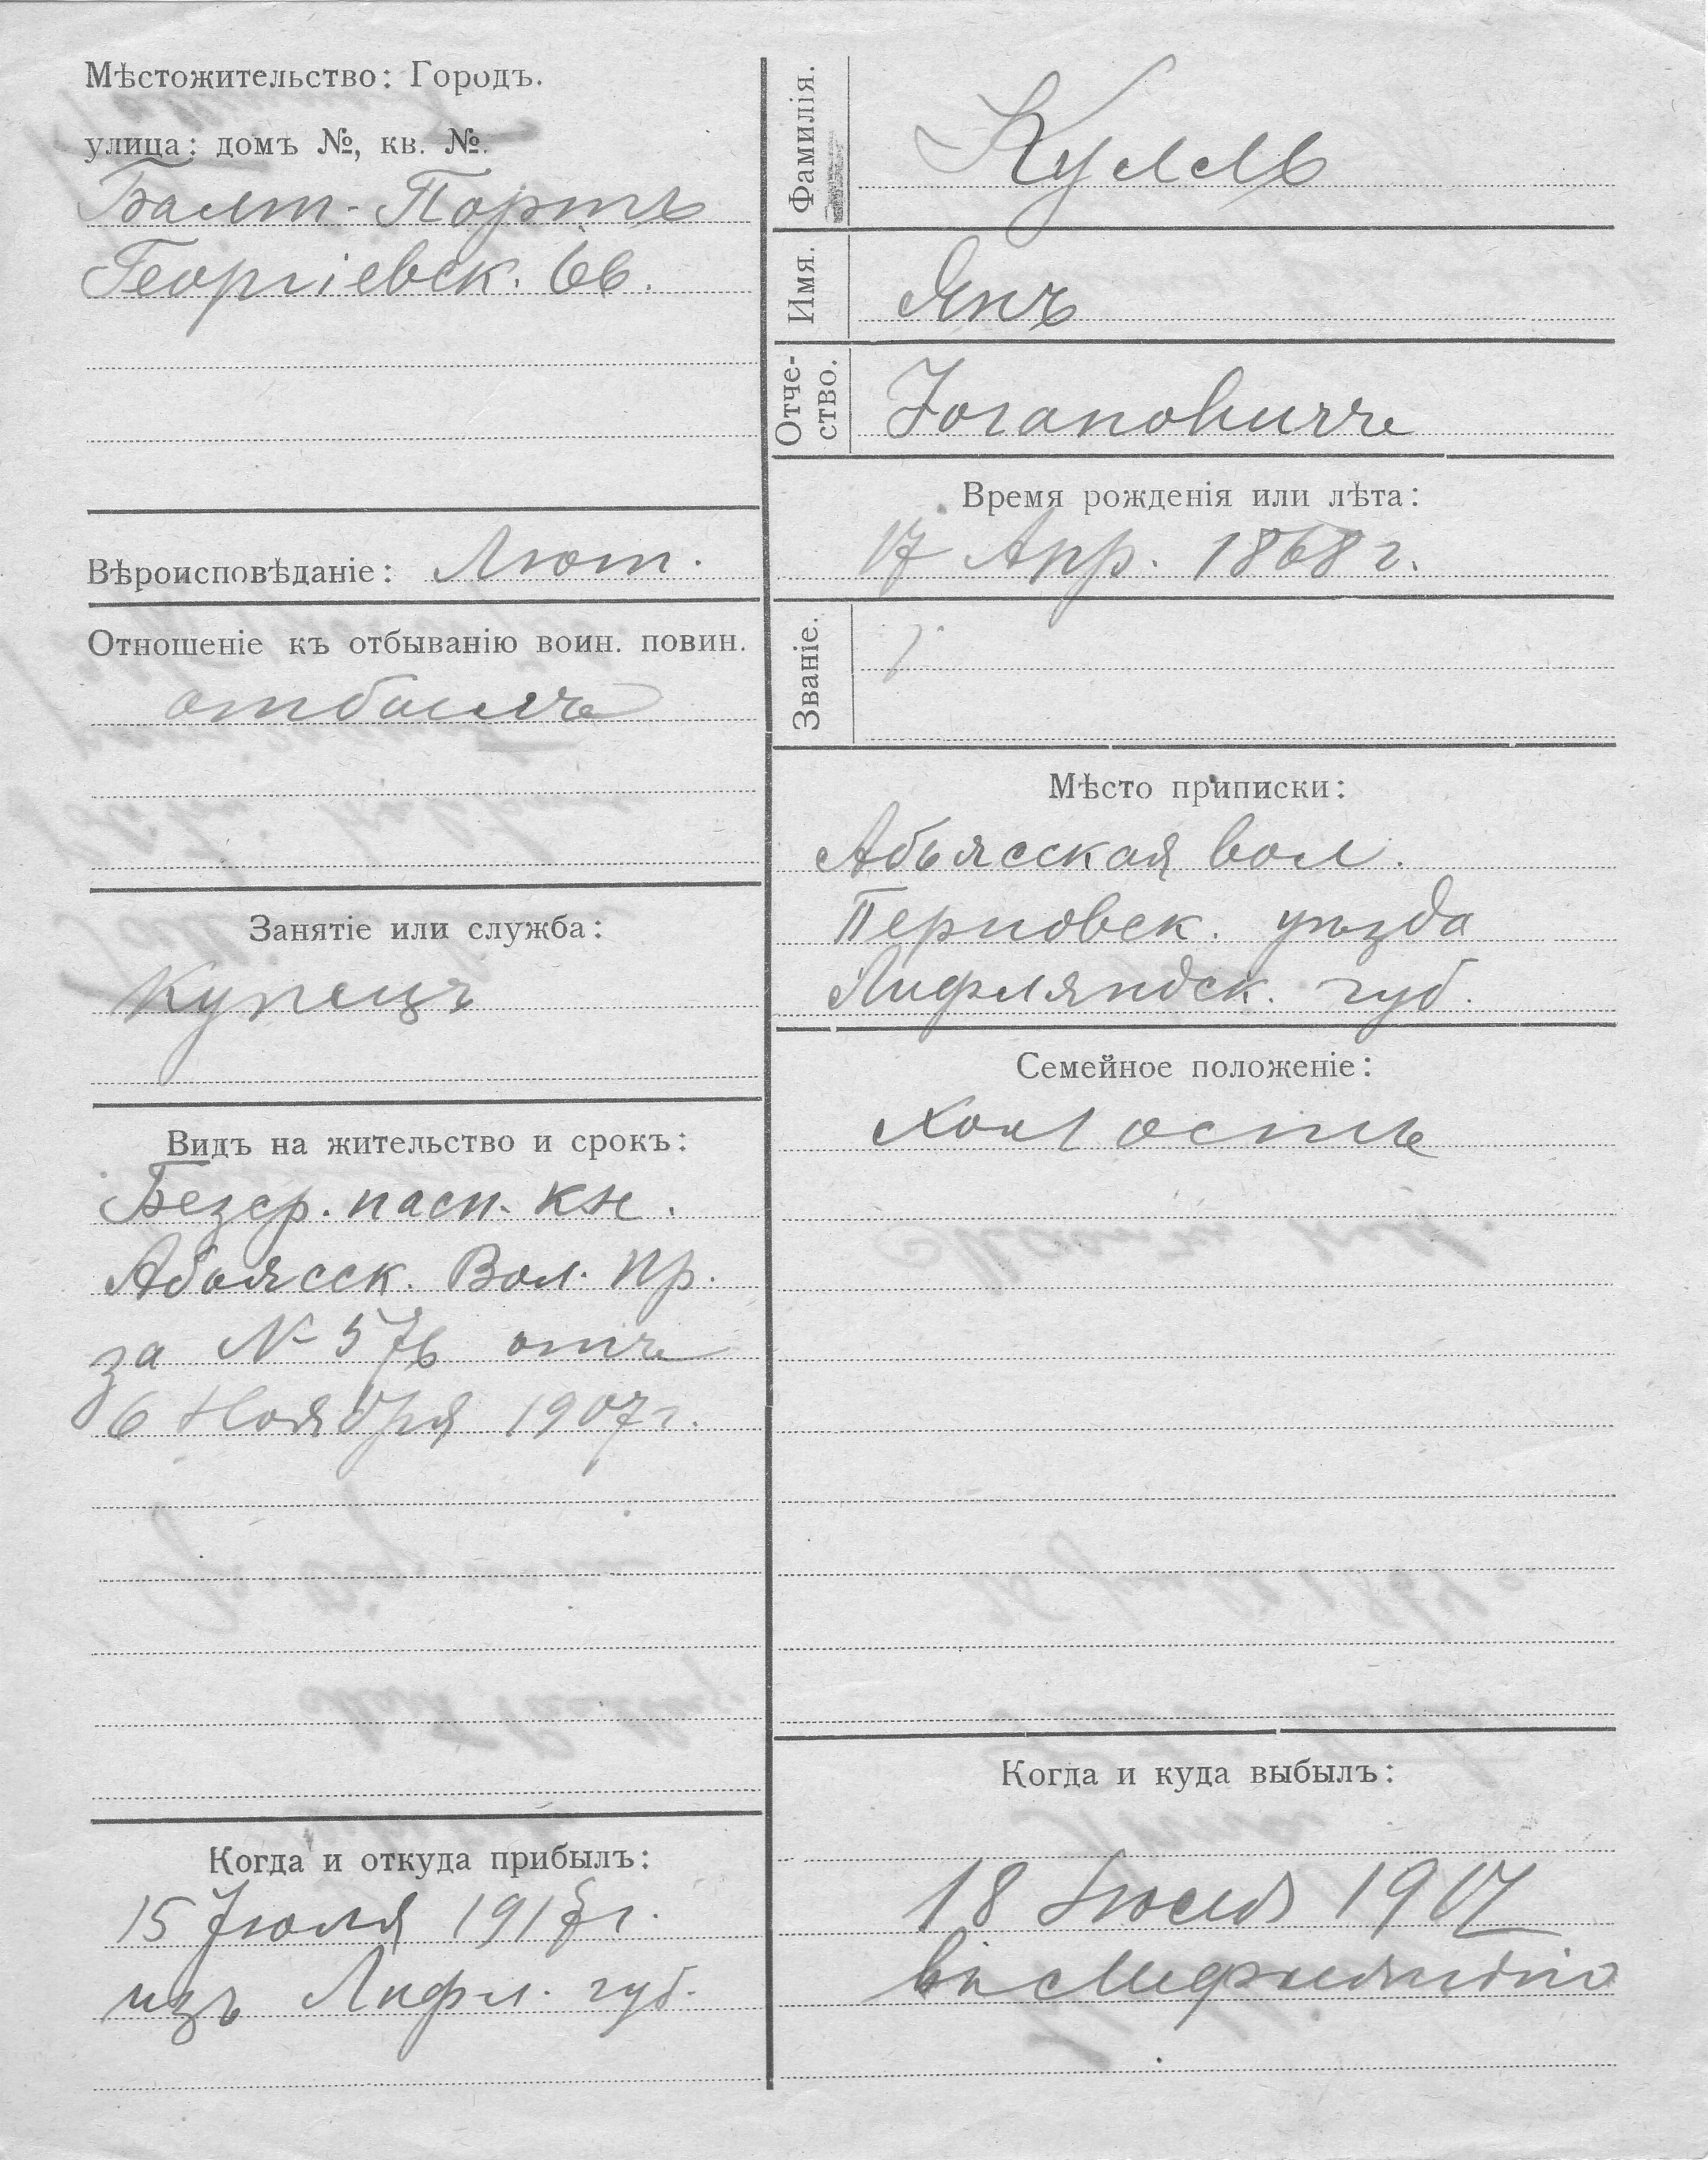 Мѣстожительство: Городъ.
улица: домъ №, кв. №.
Балт-Портъ
Георгіевск. 66.
Вѣроисповѣданіе: Лют.
Отношеніе къ отбыванію воин. повин.
отбылъ
Занятіе или служба:
Купецъ
Видъ на жительство и срокъ:
Безср. пасп. кн.
Абьясск. Вол. Пр.
за № 576 отъ
6 Ноября 1907 г.
Когда и откуда прибылъ:
15 Іюля 1915 г.
изъ Лифл. губ.
Фамилія.
Кулль
Имя.
Янъ
Отче-
ство.
Іогановичъ
Время рожденія или лѣта:
17 Апр. 1868 г.
Званіе.
Мѣсто приписки:
Абьясская вол.
Перновск. уѣзда
Лифляндск. губ.
Семейное положеніе:
Холостъ
Когда и куда выбылъ:
18 Іюля 1917
въ Лифляндію